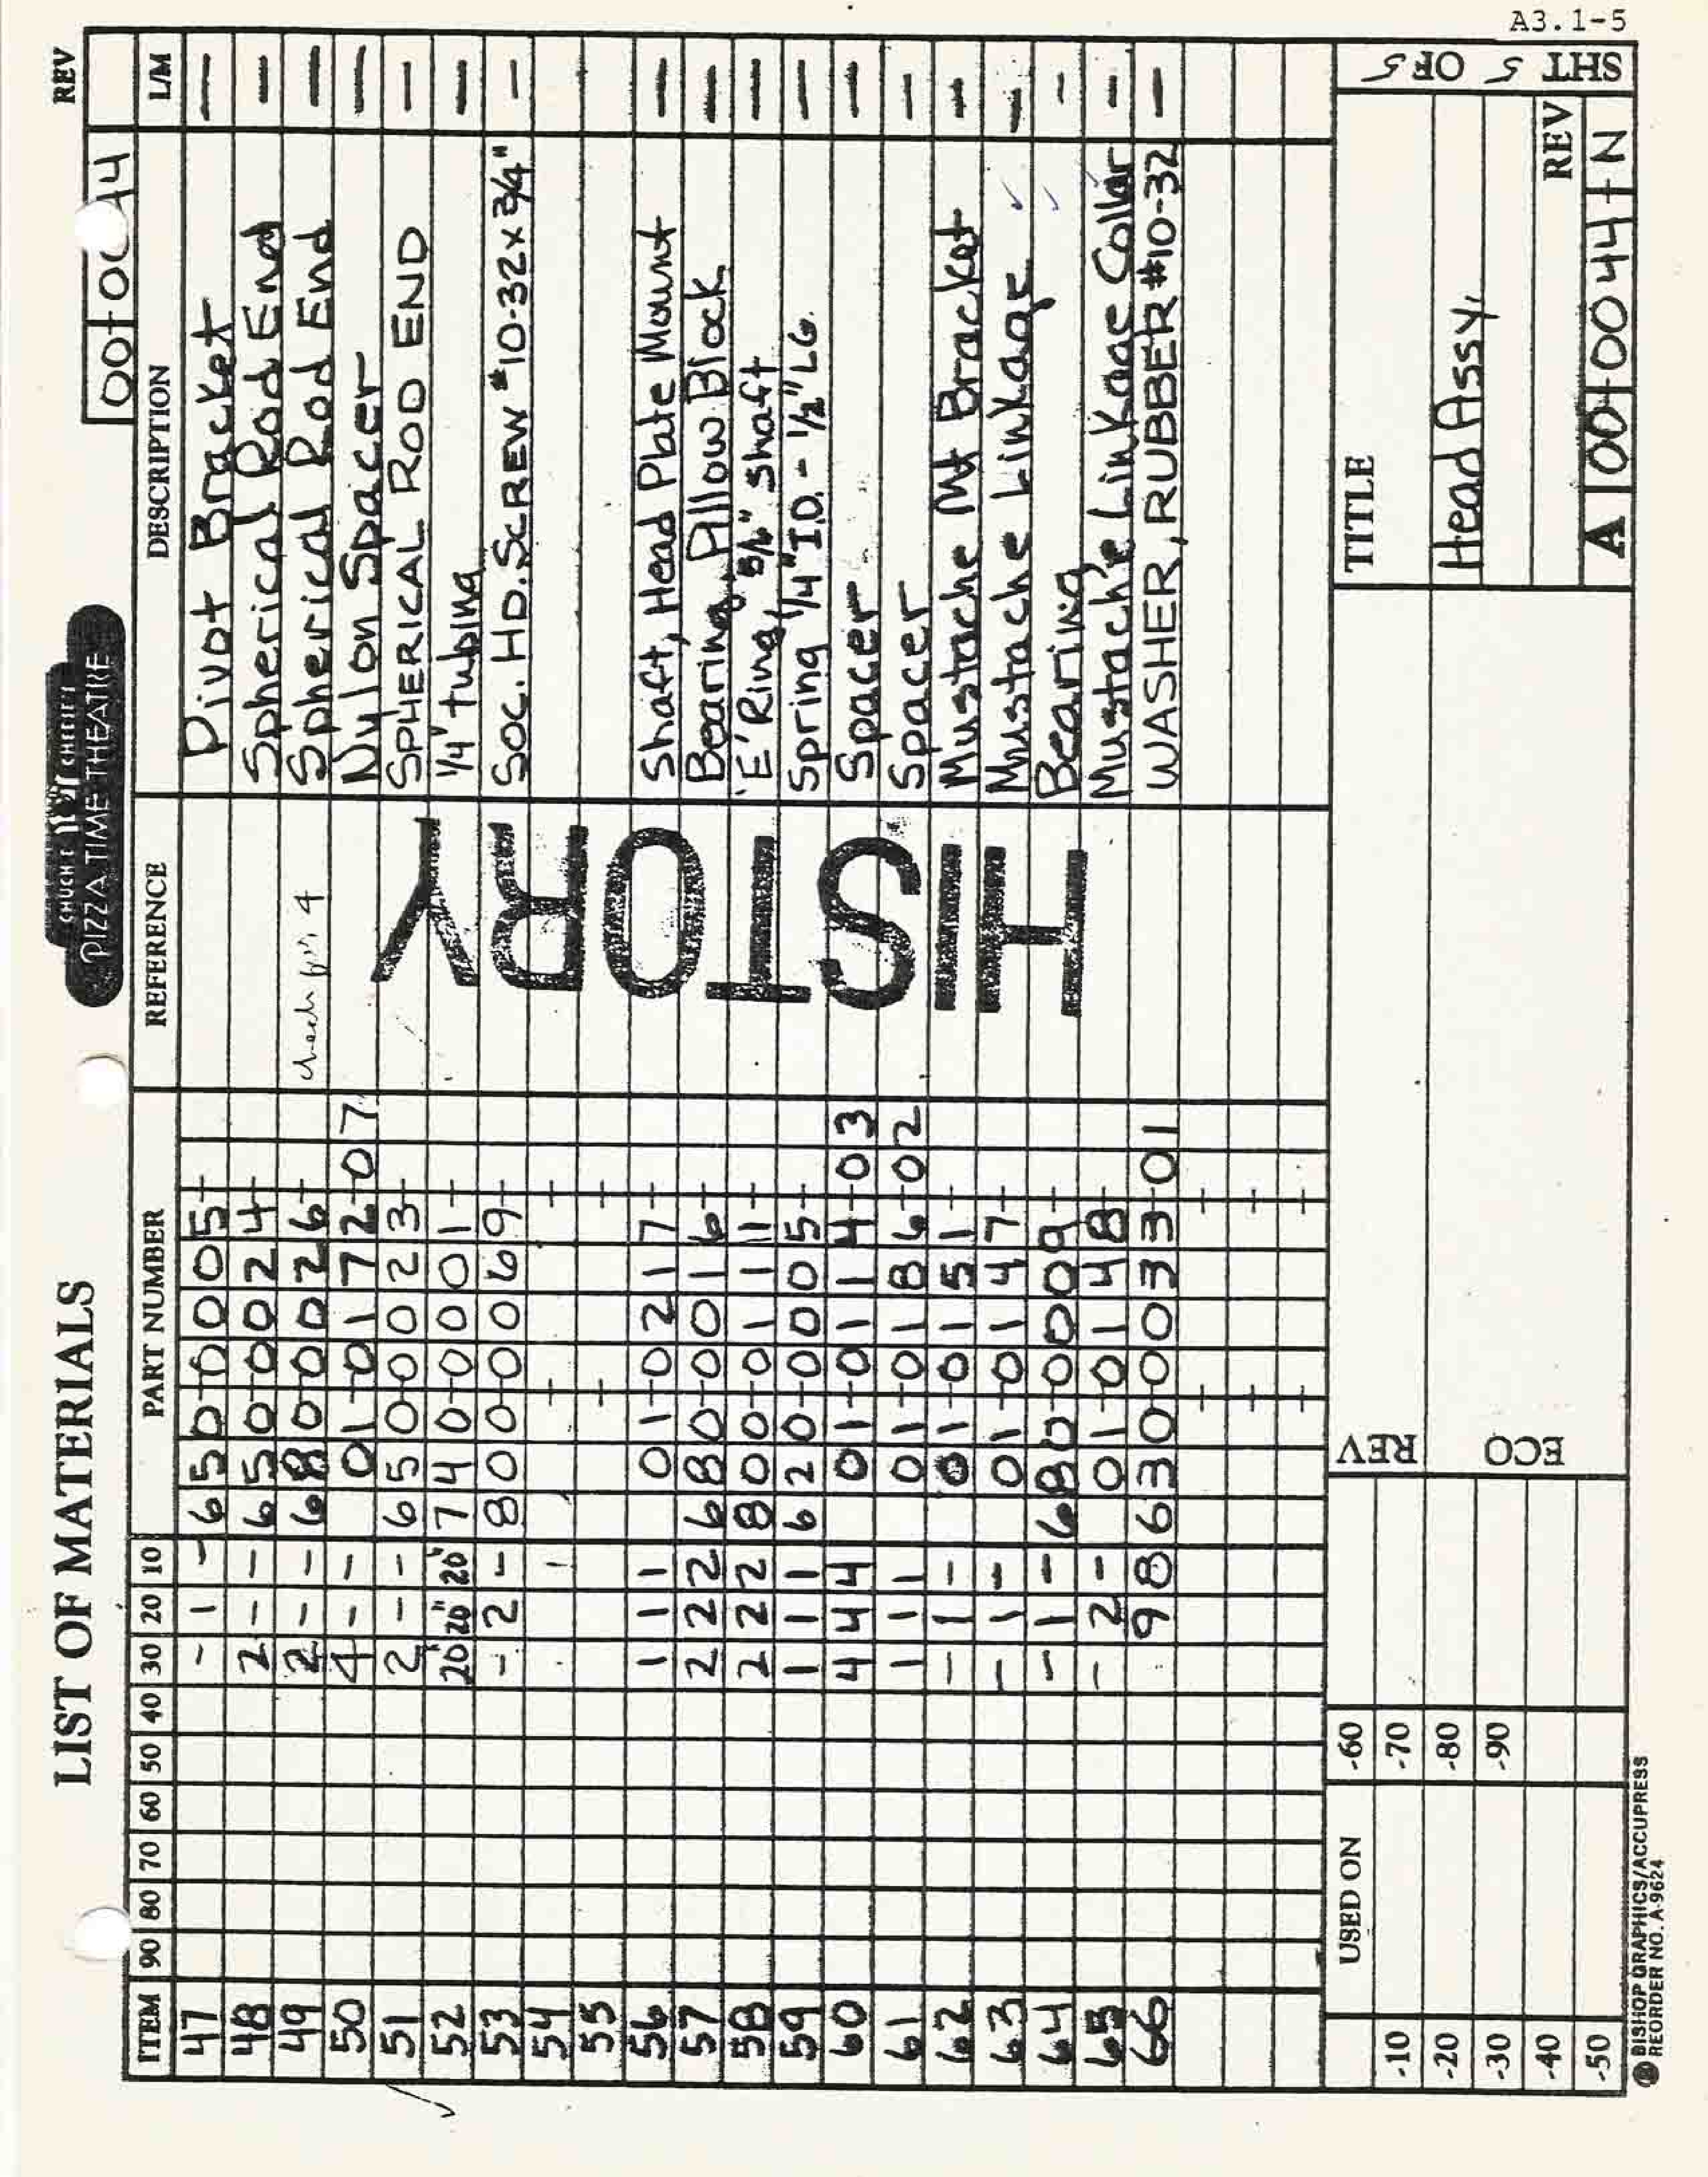 A3.1-5
LIST OF MATERIALS
CHUCK E. CHEESE'S
PIZZA TIME THEATRE
REV
00+0 44
ITEM 90 80 70 60 50 40 30 20 10 PART NUMBER REFERENCE DESCRIPTION L/M
47 - 1 - 650-0005- Pivot Bracket -
48 2 - - 650-0024- Spherical Rod End -
49 2 - - 680-0026- check 4 Spherical Rod End -
50 4 - - 01-0172-07 Nylon Spacer -
51 2 - - 650-0023- SPHERICAL ROD END -
52 20" 20" 20" 740-0001- 1/4" tubing -
53 - 2 - 800-0069- SOC. HD. SCREW #10-32 x 3/4" -
54
55
56 1 1 1 01-0217- Shaft, Head Plate Mount -
57 2 2 2 680-0016- Bearing, Pillow Block -
58 2 2 2 800-0111- 'E' Ring, 5/16" Shaft -
59 1 1 1 620-0005- Spring 1/4" I.D. - 1/2" LG. -
60 4 4 4 01-0114-03 Spacer -
61 1 1 1 01-0186-02 Spacer -
62 - 1 - 01-0151- Mustache Mt Bracket -
63 - 1 - 01-0147- Mustache Linkage -
64 - 1 - 680-0009- Bearing -
65 - 2 - 01-0148- Mustache Linkage Collar -
66 9 8 630-0033-01 WASHER, RUBBER #10-32 -
HISTORY
USED ON
-10 -60
-20 -70
-30 -80
-40 -90
-50
REV
ECO
TITLE
Head Assy.
SHT 5 OF 5
REV
A 00+0044+ N
BISHOP GRAPHICS/ACCUPRESS
REORDER NO. A-9624